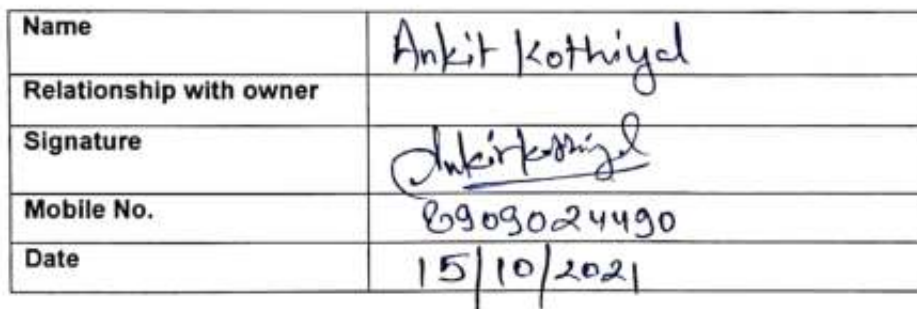 Name Ankit Kothiyal
Relationship with owner
Signature Ankitkothiyal
Mobile No. 8909024490
Date 15/10/2021